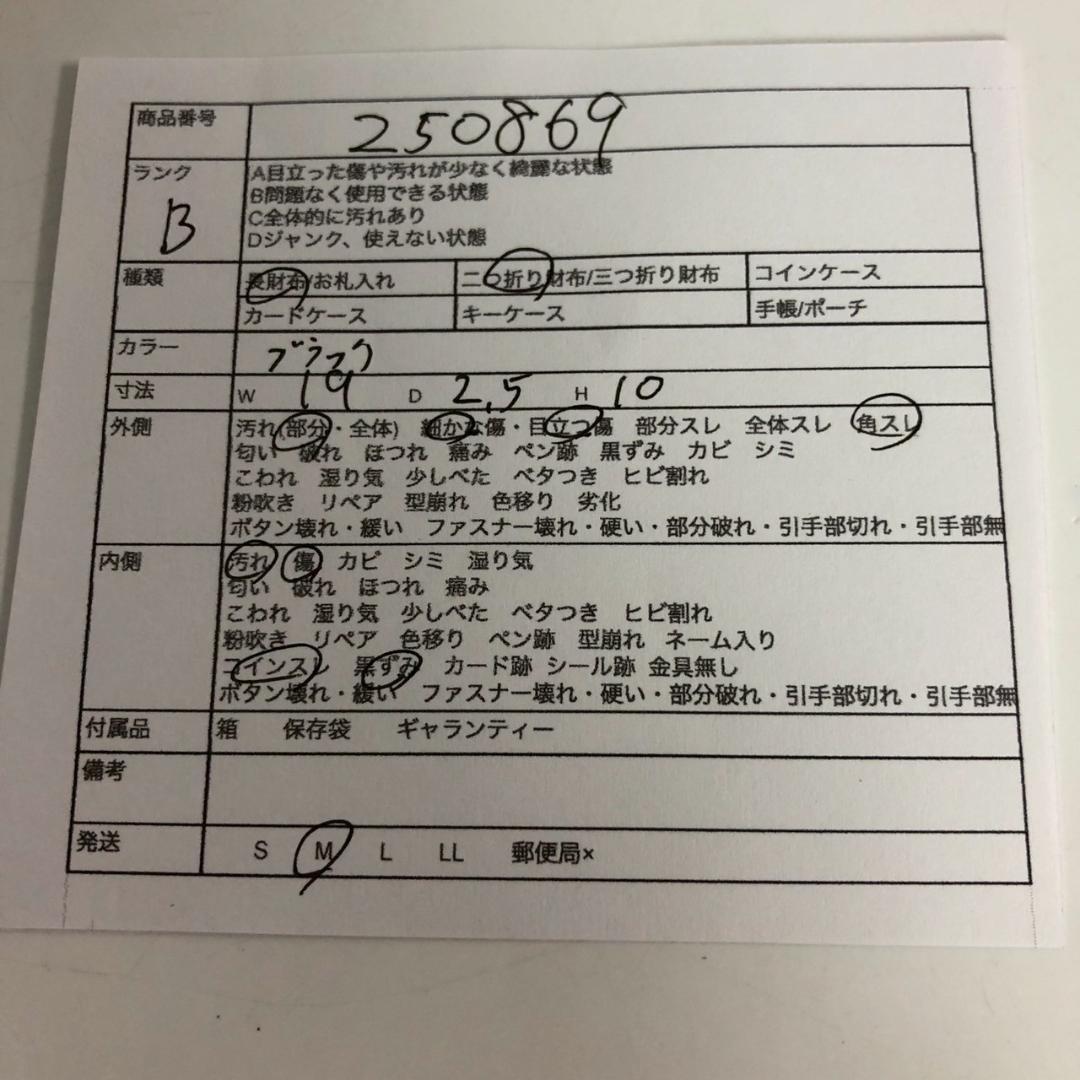 商品番号 250869
ランク B
A目立った傷や汚れが少なく綺麗な状態
B問題なく使用できる状態
C全体的に汚れあり
Dジャンク、使えない状態
種類 長財布/お札入れ 二つ折り財布/三つ折り財布 コインケース
カードケース キーケース 手帳/ポーチ
カラー ブラック
寸法 W 19 D 2.5 H 10
外側 汚れ(部分・全体) 細かな傷・目立つ傷 部分スレ 全体スレ 角スレ
匂い 破れ ほつれ 痛み ペン跡 黒ずみ カビ シミ
こわれ 湿り気 少しべた ベタつき ヒビ割れ
粉吹き リペア 型崩れ 色移り 劣化
ボタン壊れ・緩い ファスナー壊れ・硬い・部分破れ・引手部切れ・引手部無
内側 汚れ 傷 カビ シミ 湿り気
匂い 破れ ほつれ 痛み
こわれ 湿り気 少しべた ベタつき ヒビ割れ
粉吹き リペア 色移り ペン跡 型崩れ ネーム入り
コインスレ 黒ずみ カード跡 シール跡 金具無し
ボタン壊れ・緩い ファスナー壊れ・硬い・部分破れ・引手部切れ・引手部無
付属品 箱 保存袋 ギャランティー
備考
発送 S M L LL 郵便局×